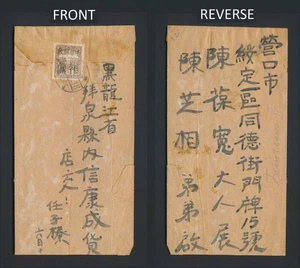 FRONT
REVERSE
黑龍江省
拜泉縣內信康成貨
店交
任子榛
六月十
營口市
綏定區同德街門牌15號
陳葆寬大人展
陳芝相弟弟啟